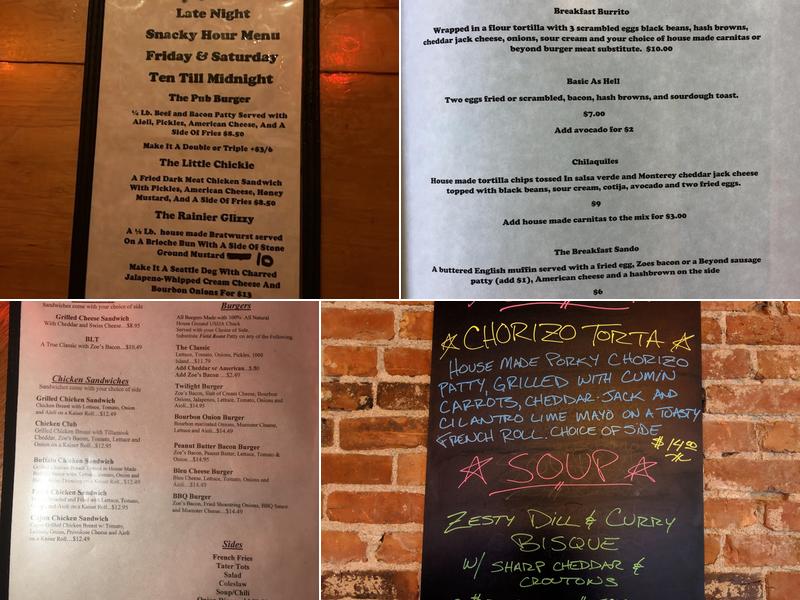 Late Night
Snacky Hour Menu
Friday & Saturday
Ten Till Midnight
The Pub Burger
¼ Lb. Beef and Bacon Patty Served with
Aioli, Pickles, American Cheese, And A
Side Of Fries $8.50
Make It A Double or Triple +$3/6
The Little Chickie
A Fried Dark Meat Chicken Sandwich
With Pickles, American Cheese, Honey
Mustard, And A Side Of Fries $8.50
The Rainier Glizzy
A ¼ Lb. house made Bratwurst served
On A Brioche Bun With A Side Of Stone
Ground Mustard 10
Make It A Seattle Dog With Charred
Jalapeno-Whipped Cream Cheese And
Bourbon Onions For $13
Breakfast Burrito
Wrapped in a flour tortilla with 3 scrambled eggs black beans, hash browns,
cheddar jack cheese, onions, sour cream and your choice of house made carnitas or
beyond burger meat substitute. $10.00
Basic As Hell
Two eggs fried or scrambled, bacon, hash browns, and sourdough toast.
$7.00
Add avocado for $2
Chilaquiles
House made tortilla chips tossed In salsa verde and Monterey cheddar jack cheese
topped with black beans, sour cream, cotija, avocado and two fried eggs.
$9
Add house made carnitas to the mix for $3.00
The Breakfast Sando
A buttered English muffin served with a fried egg, Zoes bacon or a Beyond sausage
patty (add $1), American cheese and a hashbrown on the side
$6
Sandwiches come with your choice of side
Grilled Cheese Sandwich
With Cheddar and Swiss Cheese...$8.95
BLT
A True Classic with Zoe's Bacon...$10.49
Chicken Sandwiches
Sandwiches come with your choice of side
Grilled Chicken Sandwich
Chicken Breast with Lettuce, Tomato, Onion
and Aioli on a Kaiser Roll...$12.49
Chicken Club
Grilled Chicken Breast with Tillamook
Cheddar, Zoe's Bacon, Tomato, Lettuce and
Onion on a Kaiser Roll...$12.95
Buffalo Chicken Sandwich
Grilled Chicken Breast Tossed in House Made
Sauce with Lettuce, Tomato, Onion and
Dressing on a Kaiser Roll...$12.49
Chicken Sandwich
and Fried with Lettuce, Tomato,
and Aioli on a Kaiser Roll...$12.95
Cajun Chicken Sandwich
Cajun Grilled Chicken Breast w/ Tomato,
Lettuce, Onion, Provolone Cheese and Aioli
on a Kaiser Roll...$12.49
Burgers
All Burgers Made with 100% All Natural
House Ground USDA Chuck
Served with your Choice of Side.
Substitute Field Roast Patty on any of the Following.
The Classic
Lettuce, Tomato, Onions, Pickles, 1000
Island...$11.79
Add Cheddar or American...$.80
Add Zoe's Bacon ...$2.49
Twilight Burger
Zoe's Bacon, Slab of Cream Cheese, Bourbon
Onions, Jalapenos, Lettuce, Tomato, Onions and
Aioli...$14.95
Bourbon Onion Burger
Bourbon marinated Onions, Muenster Cheese,
Lettuce and Aioli...$14.49
Peanut Butter Bacon Burger
Zoe's Bacon, Peanut Butter, Lettuce, Tomato &
Onion...$14.95
Bleu Cheese Burger
Bleu Cheese, Lettuce, Tomato, Onions, and
Aioli...$14.49
BBQ Burger
Zoe's Bacon, Fried Shoestring Onions, BBQ Sauce
and Muenster Cheese...$14.49
Sides
French Fries
Tater Tots
Salad
Coleslaw
Soup/Chili
CHORIZO TORTA
HOUSE MADE PORKY CHORIZO
PATTY, GRILLED WITH CUMIN
CARROTS, CHEDDAR-JACK AND
CILANTRO LIME MAYO ON A TOASTY
FRENCH ROLL. CHOICE OF SIDE
$14.50
SOUP
ZESTY DILL & CURRY
BISQUE
W/ SHARP CHEDDAR &
CROUTONS